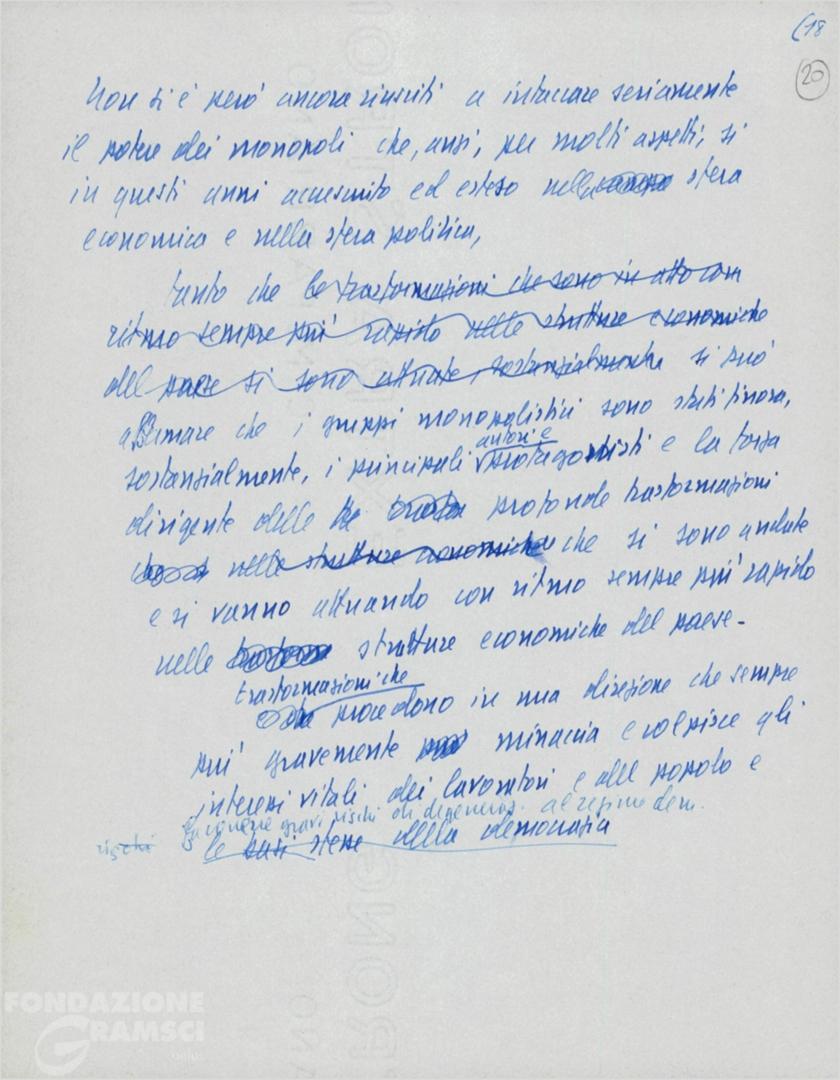 (18
20
Non si è però ancora riusciti a intaccare seriamente
il potere dei monopoli che, anzi, per molti aspetti, si
in questi anni accresciuto ed esteso nella sfera
economica e nella sfera politica,
tanto che le trasformazioni che sono in atto con
ritmo sempre più rapido nelle strutture economiche
del paese si sono attuate, sostanzialmente si può
affermare che i gruppi monopolistici sono stati finora,
autori e
sostanzialmente, i principali protagonisti e la forza
dirigente delle le profonde trasformazioni
nelle strutture economiche che si sono andate
e si vanno attuando con ritmo sempre più rapido
nelle strutture economiche del paese.
trasformazioni che
procedono in una direzione che sempre
più gravemente minaccia e colpisce gli
interessi vitali dei lavoratori e del popolo e
fa correre gravi rischi di degeneraz. al regime dem.
rischi
le basi stesse della democrazia
FONDAZIONE
GRAMSCI
onlus